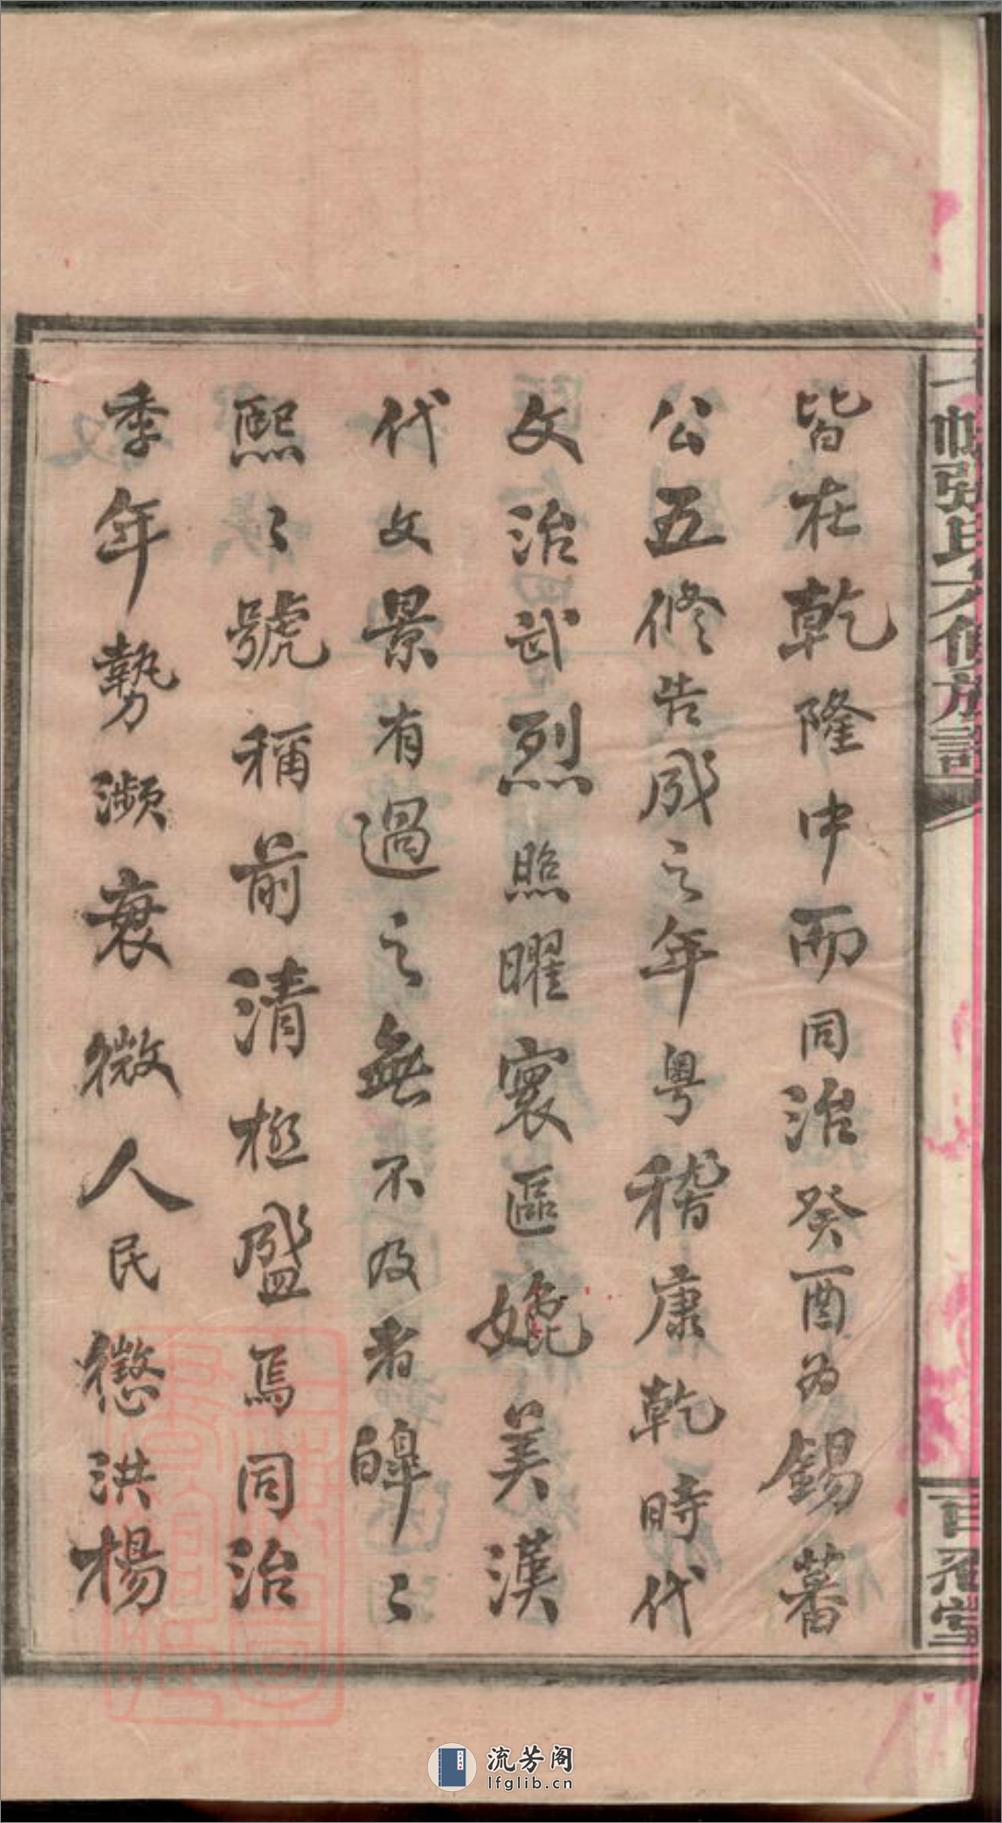 皆在乾隆中而同治癸酉为錫蕃
公五修告成之年粤稽康乾時代
文治武烈照曜寰區媲美漢
代文景有過之無不及者皞〻
熙〻號稱前清極盛焉同治
季年勢瀕衰微人民懲洪楊
張氏六修族譜
百忍堂
流芳阁
lfglib.cn